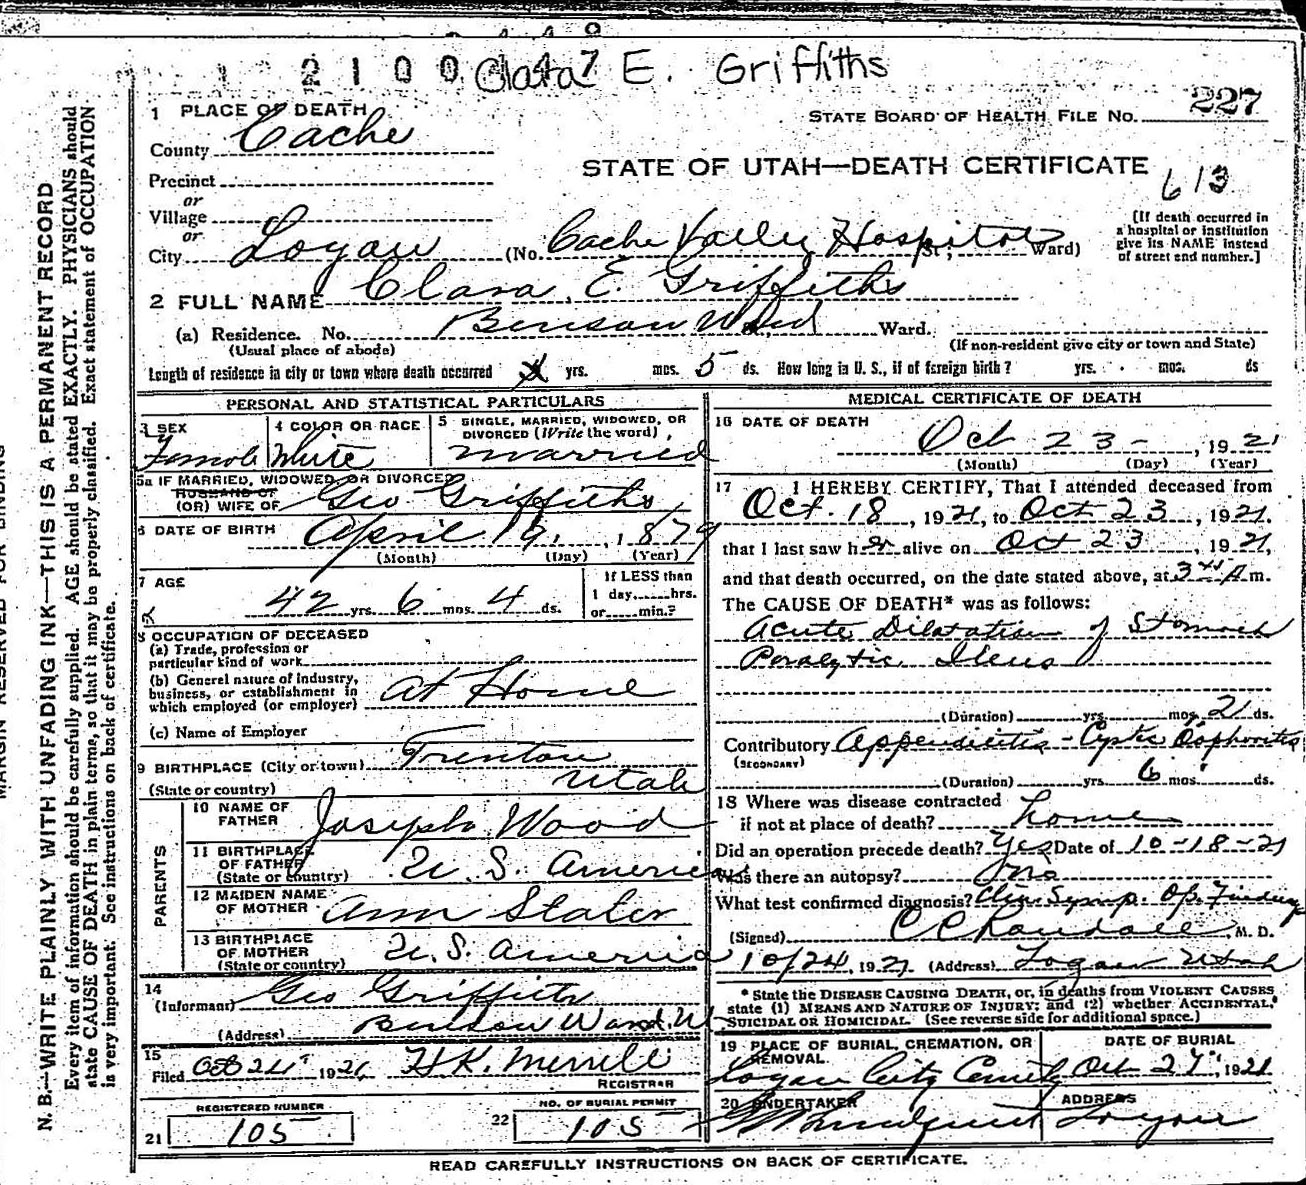 2 1 0 0 4 7
Clara E. Griffiths
1 PLACE OF DEATH
STATE BOARD OF HEALTH FILE NO. 227
County Cache
STATE OF UTAH—DEATH CERTIFICATE
613
Precinct
or
Village
or
City Logan (No. Cache Valley Hospital St.; Ward)
[If death occurred in
a hospital or institution
give its NAME instead
of street and number.]
2 FULL NAME Clara E. Griffiths
(a) Residence. No. Benson Ward Ward.
(Usual place of abode)
(If non-resident give city or town and State)
Length of residence in city or town where death occurred yrs. mos. 5 ds. How long in U. S., if of foreign birth? yrs. mos. ds
PERSONAL AND STATISTICAL PARTICULARS
3 SEX
Female
4 COLOR OR RACE
White
5 SINGLE, MARRIED, WIDOWED, OR
DIVORCED (Write the word)
married
5a IF MARRIED, WIDOWED, OR DIVORCED
HUSBAND OF
(OR) WIFE OF Geo Griffiths
6 DATE OF BIRTH April 19, 1879
(Month) (Day) (Year)
7 AGE
42 yrs. 6 mos. 4 ds.
If LESS than
1 day, hrs.
or min.?
8 OCCUPATION OF DECEASED
(a) Trade, profession or
particular kind of work
(b) General nature of industry,
business, or establishment in
which employed (or employer) At Home
(c) Name of Employer
9 BIRTHPLACE (City or town) Trenton
(State or country) Utah
PARENTS
10 NAME OF
FATHER Joseph Wood
11 BIRTHPLACE
OF FATHER
(State or country) U. S. America
12 MAIDEN NAME
OF MOTHER Ann Slater
13 BIRTHPLACE
OF MOTHER
(State or country) U. S. America
14
(Informant) Geo Griffiths
(Address) Benson Ward. U
15
Filed Oct 24" 1921, H K. Merrill
REGISTRAR
REGISTERED NUMBER
21 105
NO. OF BURIAL PERMIT
22 105
MEDICAL CERTIFICATE OF DEATH
16 DATE OF DEATH
Oct 23 - , 1921
(Month) (Day) (Year)
17 I HEREBY CERTIFY, That I attended deceased from
Oct. 18, 1921, to Oct 23, 1921.
that I last saw her alive on Oct 23, 1921,
and that death occurred, on the date stated above, at 3 A.m.
The CAUSE OF DEATH* was as follows:
Acute Dilatation of Stomach
Paralytic Ileus
(Duration) yrs. mos. 2 ds.
Contributory Appendicitis - Cystic Oophoritis
(SECONDARY)
(Duration) yrs 6 mos ds.
18 Where was disease contracted
if not at place of death? home
Did an operation precede death? Yes Date of 10-18-21
Was there an autopsy? No
What test confirmed diagnosis? Clin. Symp. Op. Findings
(Signed) C C Randall, M. D.
10/24, 1921 (Address) Logan Utah
* State the DISEASE CAUSING DEATH, or, in deaths from VIOLENT CAUSES
state (1) MEANS AND NATURE OF INJURY; and (2) whether ACCIDENTAL,
SUICIDAL OR HOMICIDAL. (See reverse side for additional space.)
19 PLACE OF BURIAL, CREMATION, OR
REMOVAL.
Logan City Cemity
DATE OF BURIAL
Oct 27", 1921
20 UNDERTAKER
Lundquist
ADDRESS
Logan
READ CAREFULLY INSTRUCTIONS ON BACK OF CERTIFICATE.
MARGIN RESERVED FOR BINDING
N. B.—WRITE PLAINLY WITH UNFADING INK—THIS IS A PERMANENT RECORD
Every item of information should be carefully supplied. AGE should be stated EXACTLY. PHYSICIANS should
state CAUSE OF DEATH in plain terms, so that it may be properly classified. Exact statement of OCCUPATION
is very important. See instructions on back of certificate.